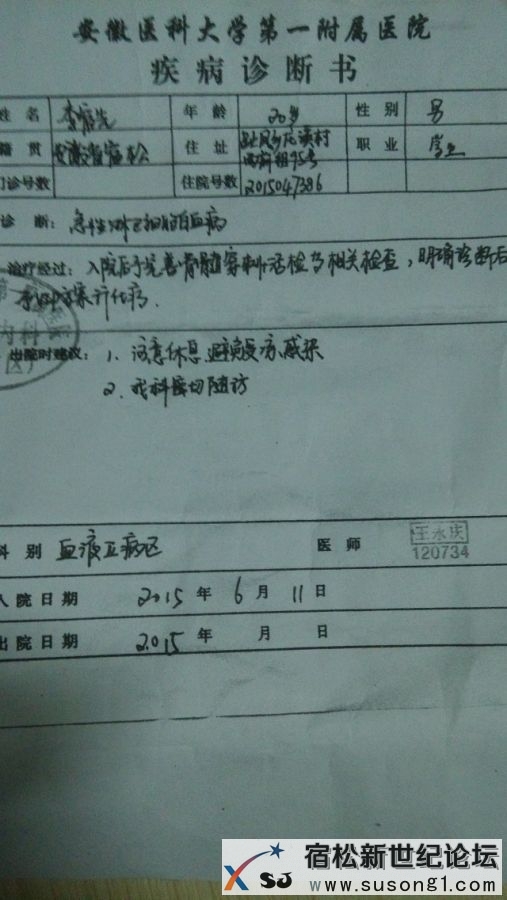 安徽医科大学第一附属医院
疾病诊断书
姓名 李 先 年龄 20岁 性别 男
籍贯 安徽省宿松 住址 村 职业 学生
门诊号数 住院号数 2015047386
诊断: 急性淋巴细胞白血病
治疗经过: 入院后予完善骨髓穿刺活检等相关检查,明确诊断后
予 方案行化疗.
内科
出院时建议: 1. 注意休息 避免 感染
2. 我科密切随访
科别 血液五病区 医师 王永庆
120734
入院日期 2015年6月11日
出院日期 2015年 月 日
宿松新世纪论坛
XSJ www.susong1.com